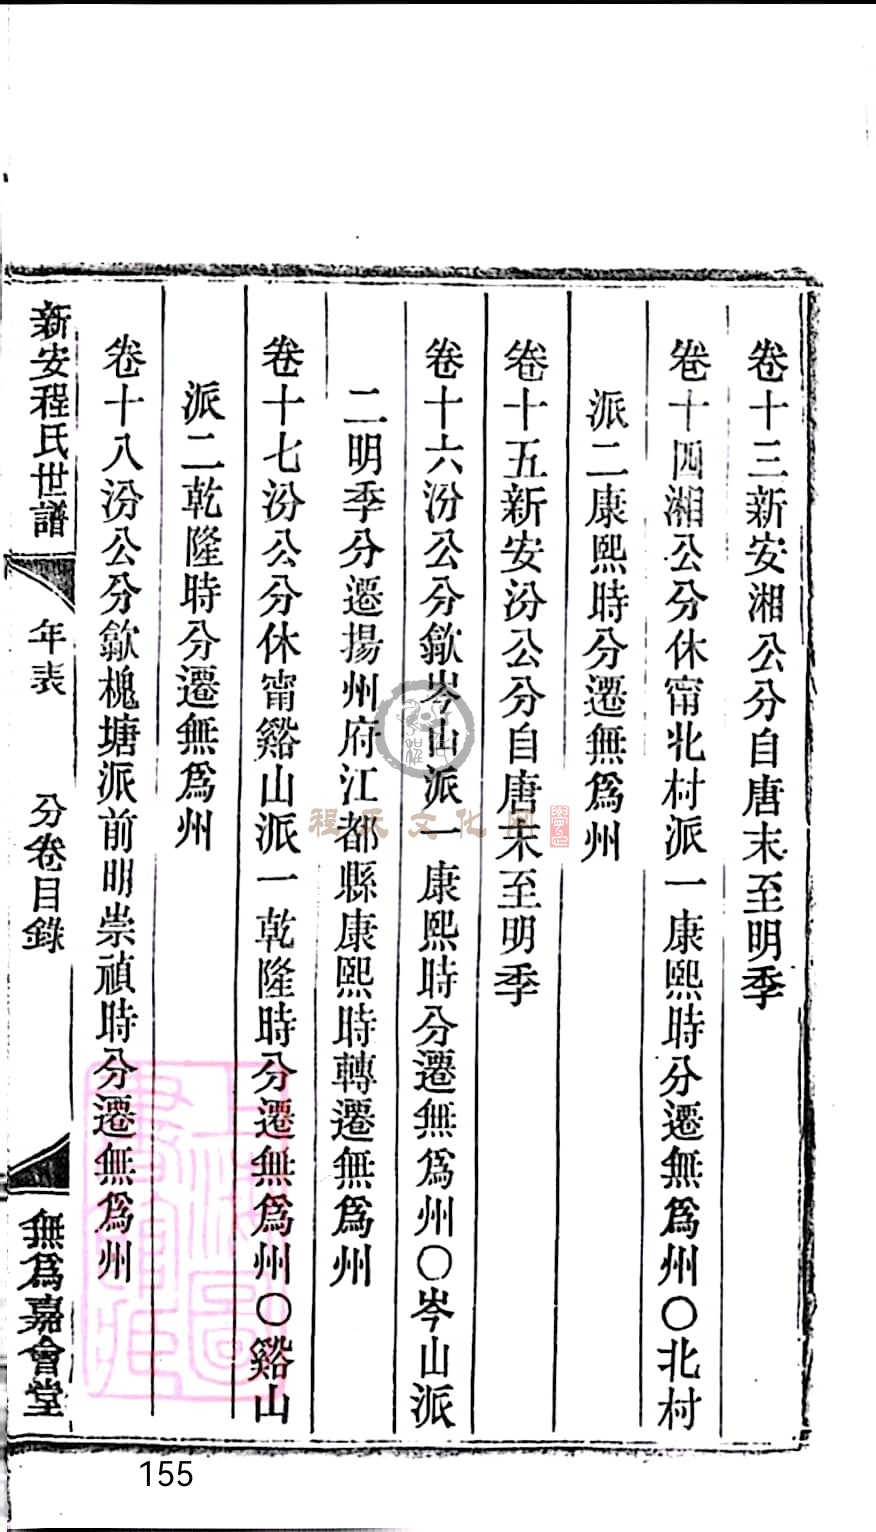 卷十三新安湘公分自唐末至明季
卷十四湘公分休甯北村派一康熙時分遷無爲州〇北村
派二康熙時分遷無爲州
卷十五新安汾公分自唐末至明季
卷十六汾公分歙岑山派一康熙時分遷無爲州〇岑山派
二明季分遷揚州府江都縣康熙時轉遷無爲州
卷十七汾公分休甯谿山派一乾隆時分遷無爲州〇谿山
派二乾隆時分遷無爲州
卷十八汾公分歙槐塘派前明崇禎時分遷無爲州
新安程氏世譜 年表 分卷目錄 無爲嘉會堂
程氏文化网
上海圖書館藏
155